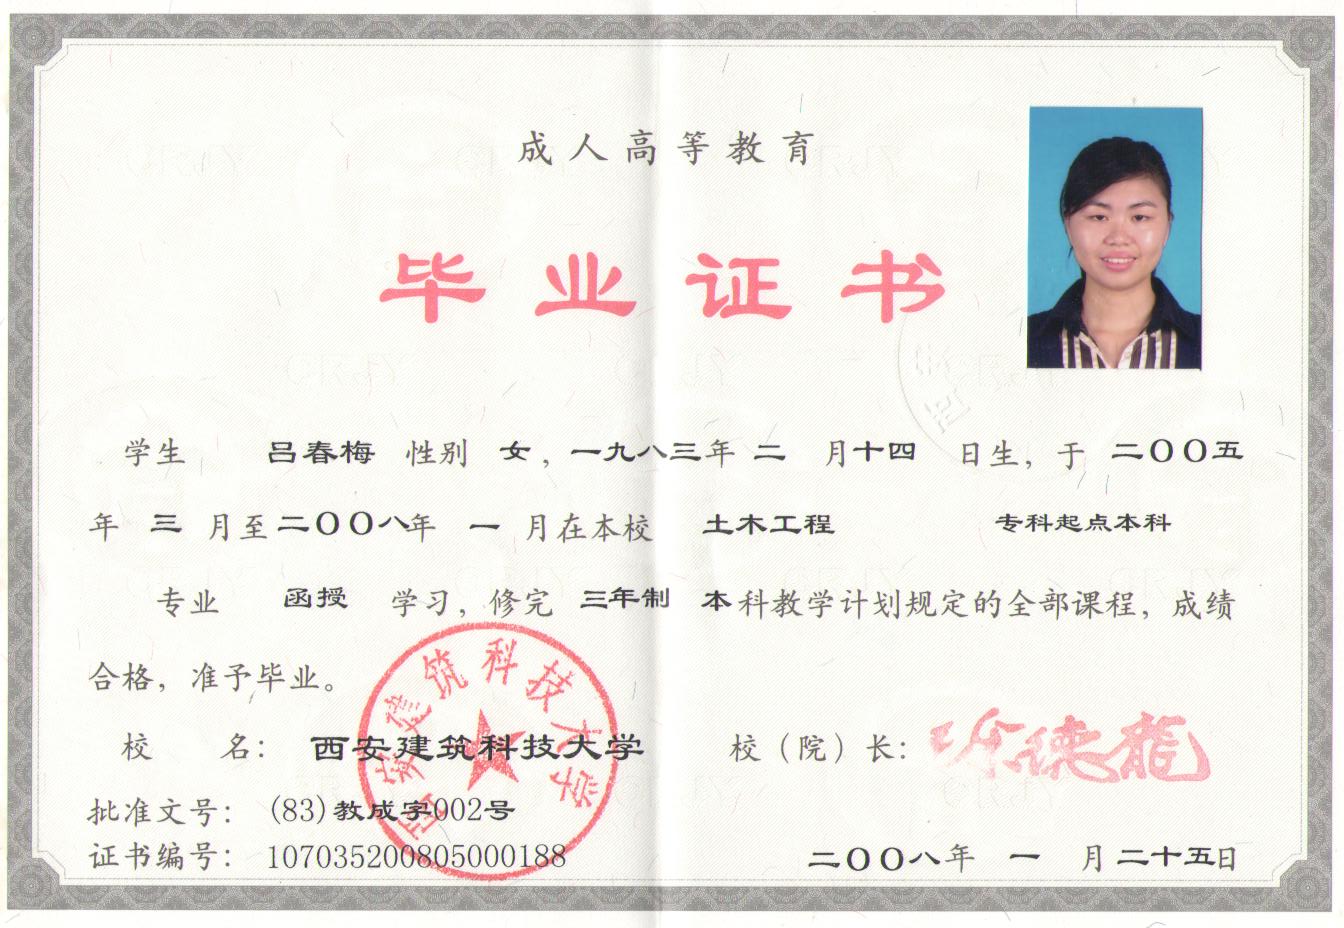 成人高等教育
毕业证书
学生 吕春梅 性别 女，一九八三年 二 月十四 日生，于 二〇〇五
年 三 月至二〇〇八年 一 月在本校 土木工程 专科起点本科
专业 函授 学习，修完 三年制 本科教学计划规定的全部课程，成绩
合格，准予毕业。
校 名： 西安建筑科技大学 校（院）长： 徐德龙
批准文号： (83)教成字002号
证书编号： 107035200805000188
二〇〇八年 一 月二十五日
西安建筑科技大学